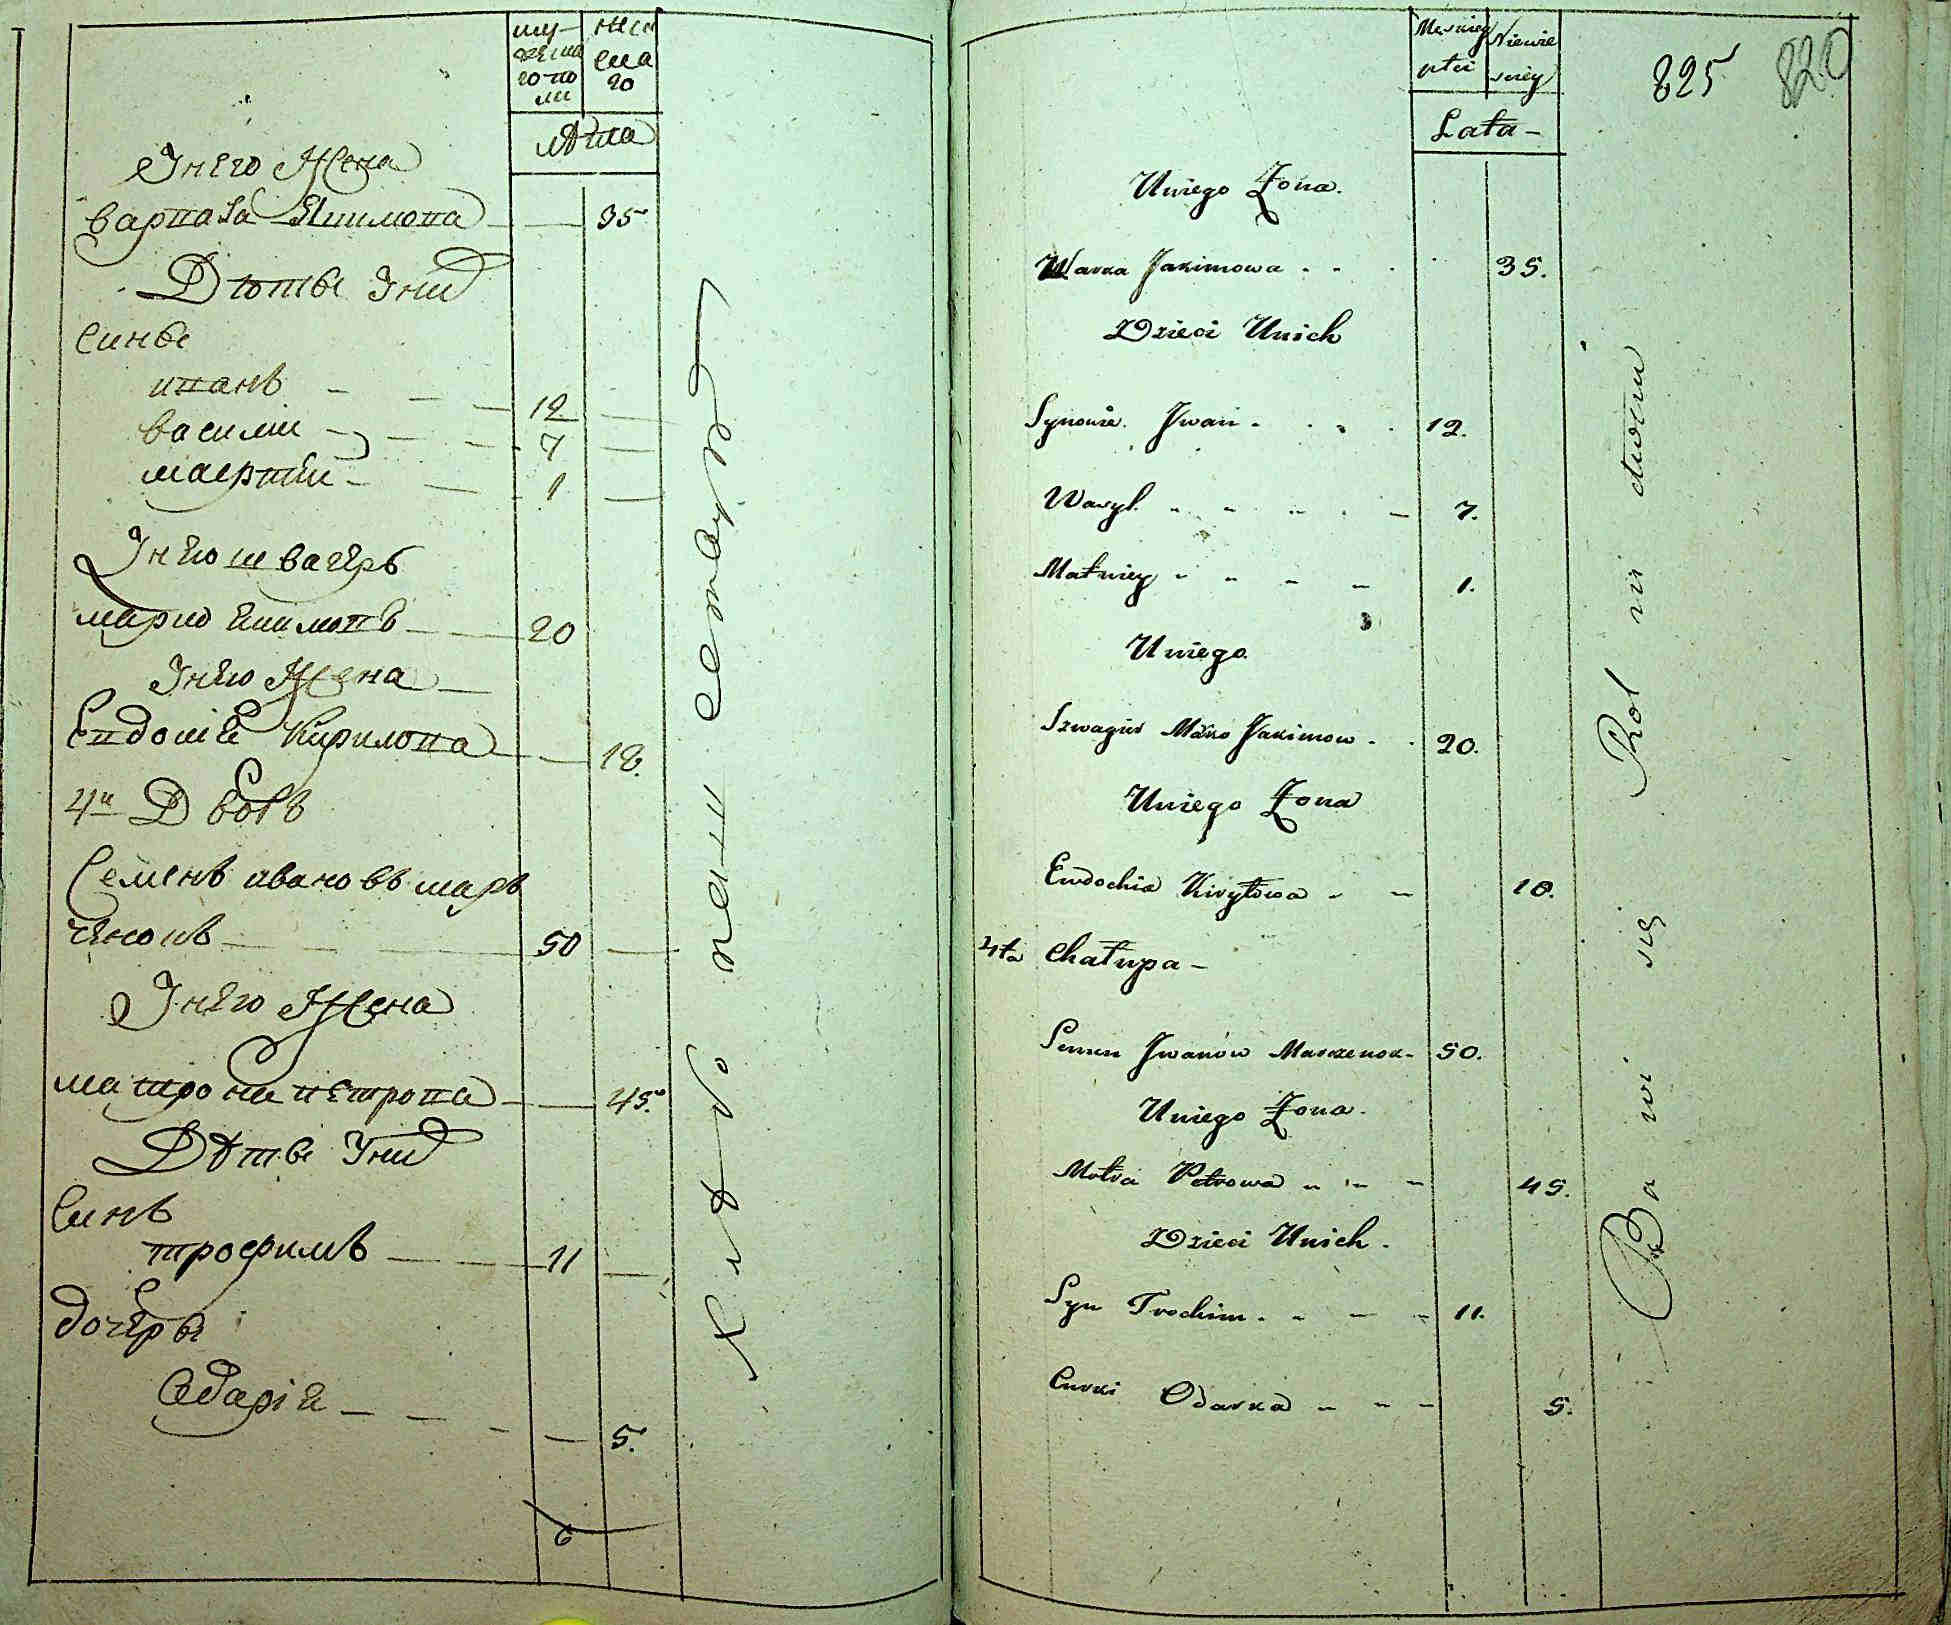 муж
ескаго по
ли
женскаго
Лѣта
Унего Жена
варвара Якимова 35
Дѣтьи Уних
Синьи
иванъ 12
василий 7
матвий 1
Унего швагеръ
марко Якимовъ 20
Унего Жена
Евдокия Кирилова 18.
4й Дворъ
Семенъ ивановъ мар
ченокъ 50
Унего Жена
матрона петрова 45.
Дѣтьи Уних
Синъ
трофимъ 11
дочеры
Одария 5.
6
Męskiej płci
Niewieściej
Lata -
825
820
Uniego Żona.
Warka Jakimowa 35.
Dzieci Unich
Synowie. Jwan 12.
Wasyl. 7.
Matwiey 1.
Uniego.
Szwagier Marko Jakimow 20.
Uniego Żona
Ewdochia Kiryłowa 18.
4ta Chałupa -
Semen Jwanów Marczenok 50.
Uniego Żona.
Motra Petrowa 45.
Dzieci Unich.
Syn Trochim. 11.
Curki Odarka 5.
Bawi się Rol